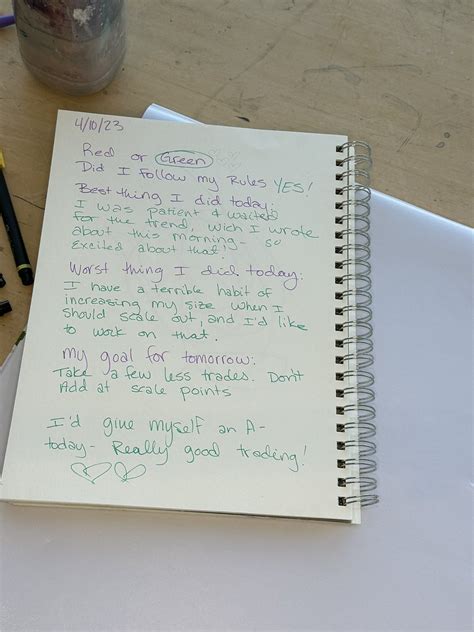 4/10/23
Red or Green
Did I follow my Rules YES!
Best thing I did today:
I was patient & waited
for the trend, wich I wrote
about this morning- so
Excited about that!
Worst thing I did today:
I have a terrible habit of
increasing my size when I
should scale out, and I'd like
to work on that.
My goal for tomorrow:
Take a few less trades. Don't
Add at scale points
I'd give myself an A-
today- Really good trading!